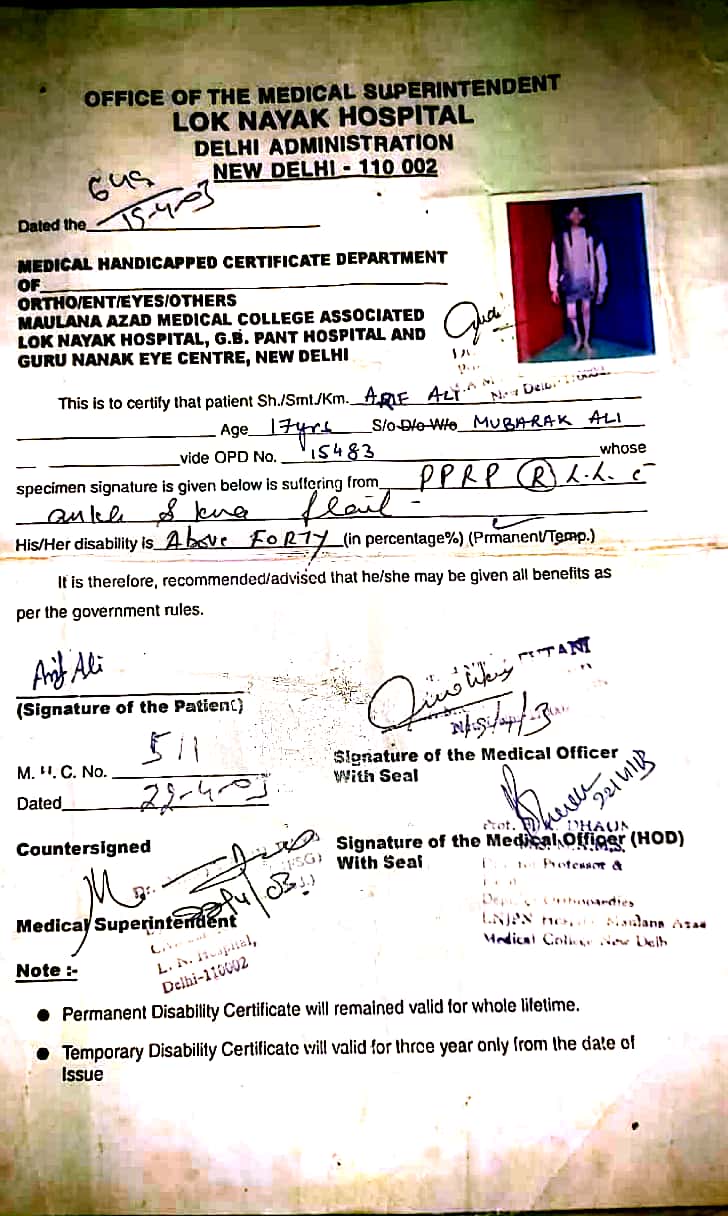 OFFICE OF THE MEDICAL SUPERINTENDENT
LOK NAYAK HOSPITAL
DELHI ADMINISTRATION
NEW DELHI - 110 002
Dated the 15-4-03
MEDICAL HANDICAPPED CERTIFICATE DEPARTMENT
OF
ORTHO/ENT/EYES/OTHERS
MAULANA AZAD MEDICAL COLLEGE ASSOCIATED
LOK NAYAK HOSPITAL, G.B. PANT HOSPITAL AND
GURU NANAK EYE CENTRE, NEW DELHI
New Delhi-110002
This is to certify that patient Sh./Smt./Km. ARIF ALI
Age 17yrs S/o D/o W/o MUBARAK ALI
vide OPD No. 15483 whose
specimen signature is given below is suffering from PPRP (R) L.L. c̄
ankle & knee flail
His/Her disability is Above FORTY (in percentage%) (Prmanent/Temp.)
It is therefore, recommended/advised that he/she may be given all benefits as
per the government rules.
Arif Ali
(Signature of the Patient)
M. H. C. No. 511
Dated 22-4-03
Signature of the Medical Officer
With Seal
22/4/03
Prof. DHAUN
Signature of the Medical Officer (HOD)
With Seal
Professor &
Orthopaedics
LNJPN Maulana Azad
Medical College New Delhi
Countersigned
Medical Superintendent
L. N. Hospital,
Delhi-110002
Note :-
● Permanent Disability Certificate will remained valid for whole lifetime.
● Temporary Disability Certificate will valid for three year only from the date of
Issue